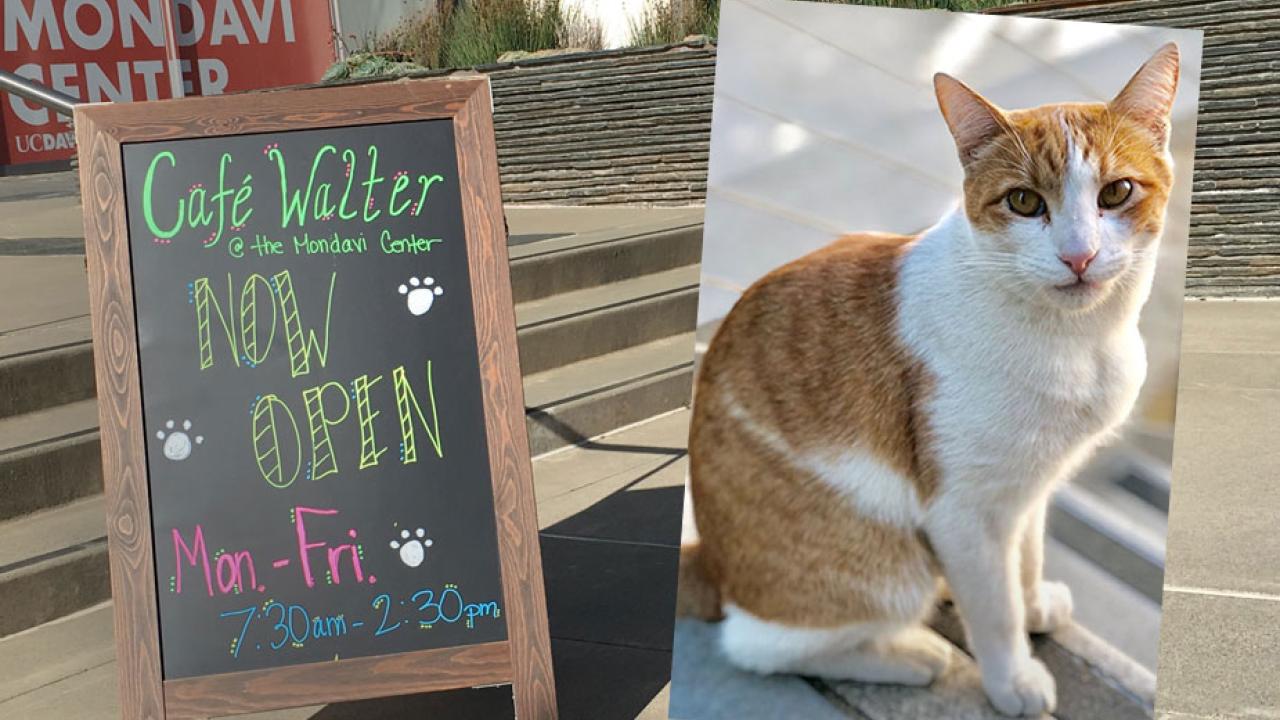 MONDAVI
CENTER
UCDAV
Café Walter
@ the Mondavi Center
NOW
OPEN
Mon.-Fri.
7:30am-2:30pm